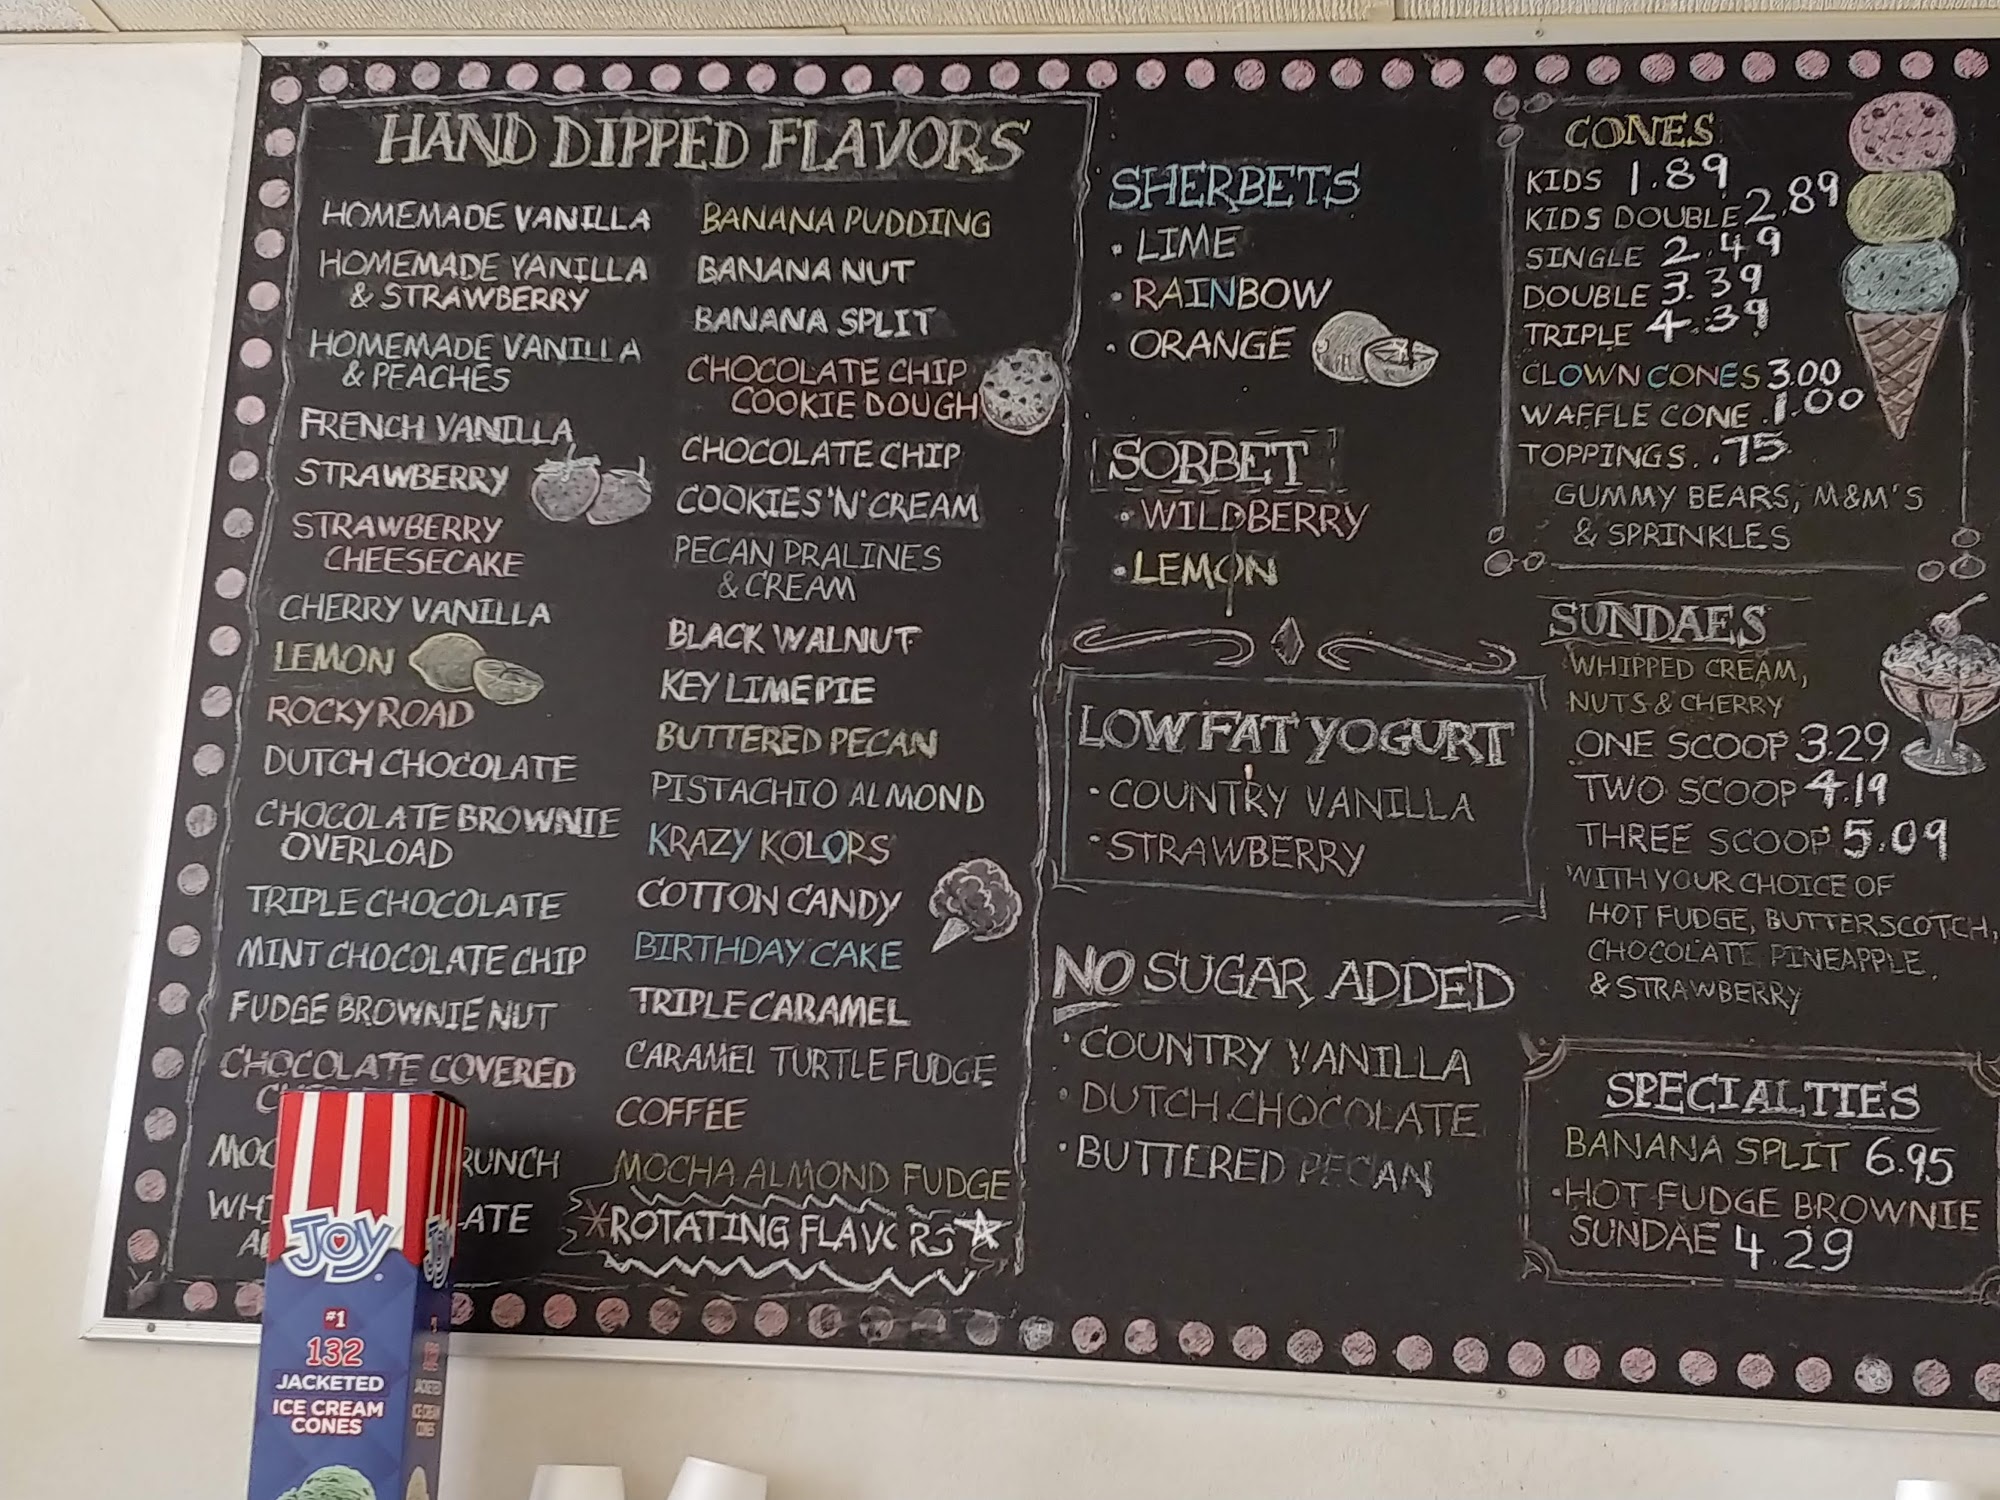 HAND DIPPED FLAVORS
HOMEMADE VANILLA
HOMEMADE VANILLA
& STRAWBERRY
HOMEMADE VANILLA
& PEACHES
FRENCH VANILLA
STRAWBERRY
STRAWBERRY
CHEESECAKE
CHERRY VANILLA
LEMON
ROCKY ROAD
DUTCH CHOCOLATE
CHOCOLATE BROWNIE
OVERLOAD
TRIPLE CHOCOLATE
MINT CHOCOLATE CHIP
FUDGE BROWNIE NUT
CHOCOLATE COVERED
BANANA PUDDING
BANANA NUT
BANANA SPLIT
CHOCOLATE CHIP
COOKIE DOUGH
CHOCOLATE CHIP
COOKIES 'N' CREAM
PECAN PRALINES
& CREAM
BLACK WALNUT
KEY LIME PIE
BUTTERED PECAN
PISTACHIO ALMOND
KRAZY KOLORS
COTTON CANDY
BIRTHDAY CAKE
TRIPLE CARAMEL
CARAMEL TURTLE FUDGE
COFFEE
MOCHA ALMOND FUDGE
ROTATING FLAVORS
SHERBETS
• LIME
• RAINBOW
• ORANGE
SORBET
• WILDBERRY
• LEMON
LOW FAT YOGURT
• COUNTRY VANILLA
• STRAWBERRY
NO SUGAR ADDED
• COUNTRY VANILLA
• DUTCH CHOCOLATE
• BUTTERED PECAN
CONES
KIDS 1.89
KIDS DOUBLE 2.89
SINGLE 2.49
DOUBLE 3.39
TRIPLE 4.39
CLOWN CONES 3.00
WAFFLE CONE .1.00
TOPPINGS. .75
GUMMY BEARS, M&M'S
& SPRINKLES
SUNDAES
WHIPPED CREAM,
NUTS & CHERRY
ONE SCOOP 3.29
TWO SCOOP 4.19
THREE SCOOP 5.09
WITH YOUR CHOICE OF
HOT FUDGE, BUTTERSCOTCH,
CHOCOLATE PINEAPPLE,
& STRAWBERRY
SPECIALTIES
BANANA SPLIT 6.95
• HOT FUDGE BROWNIE
SUNDAE 4.29
JOY
#1
132
JACKETED
ICE CREAM
CONES